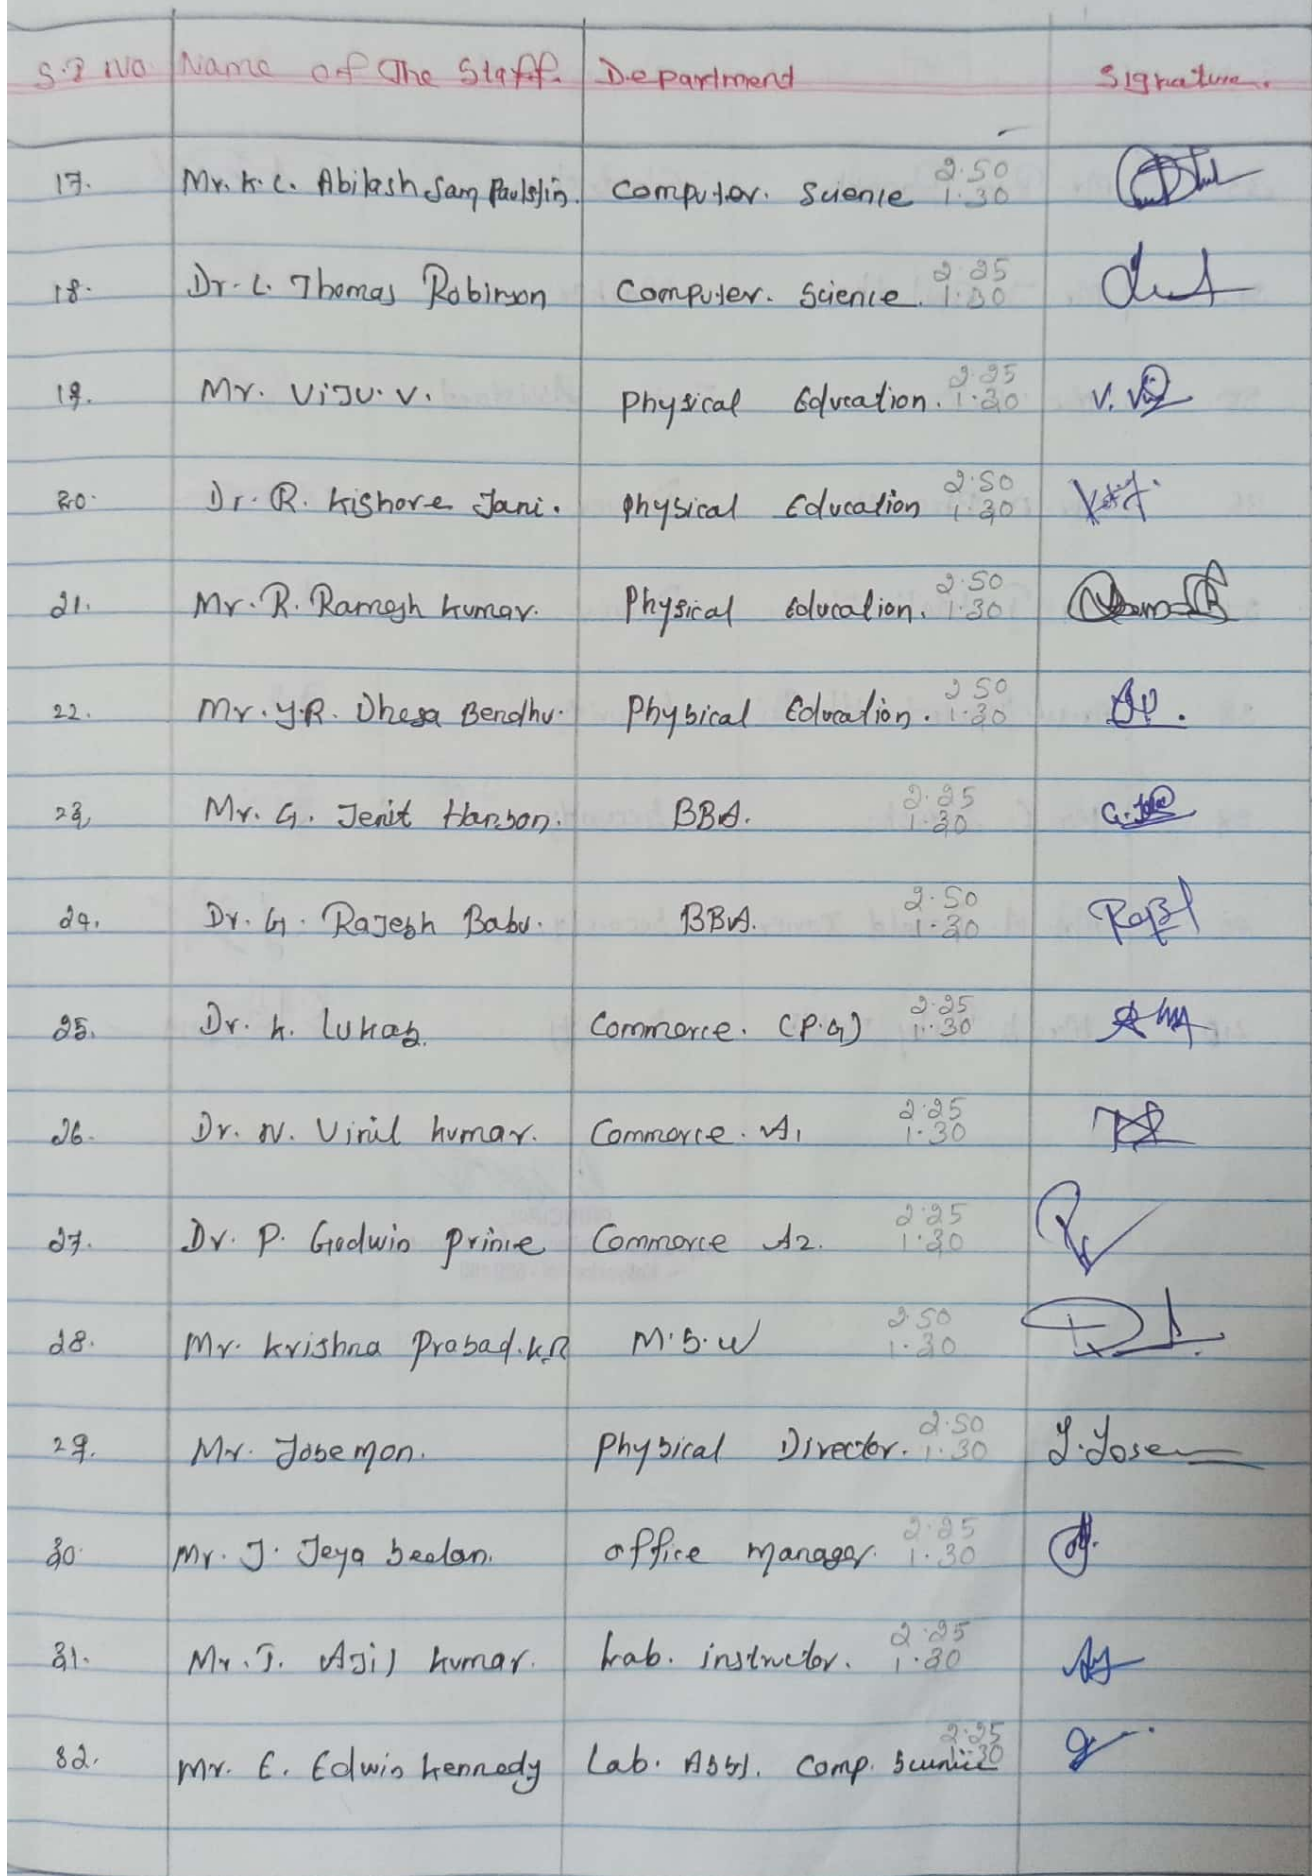 S.I NO Name of The Staff. Department Signature.
17. Mr. K. C. Abilash Sam Paulstin. Computer. Science 2.50
1.30
18. Dr. L. Thomas Robinson Computer. Science. 2.25
1.30
19. Mr. Viju. V. Physical Education. 2.25
1.30
V. Vi
20. Dr. R. Kishore Jani. Physical Education 2.50
1.30
21. Mr. R. Ramesh Kumar. Physical Education. 2.50
1.30
22. Mr. Y.R. Dhesa Bendhu. Physical Education. 2.50
1.30
23. Mr. G. Jenit Hanson. BBA. 2.25
1.30
24. Dr. G. Rajesh Babu. BBA. 2.50
1.30
25. Dr. K. Lukas. Commerce. (P.G) 2.25
1.30
26. Dr. N. Vinil Kumar. Commerce. A1 2.25
1.30
27. Dr. P. Godwin Prince Commerce A2. 2.25
1.30
28. Mr. Krishna Prasad. K.R M.S.W 2.50
1.30
29. Mr. Josemon. Physical Director. 2.50
1.30
J. Jose
30. Mr. J. Jeya Seelan. office manager. 2.25
1.30
31. Mr. J. Ajil Kumar. Lab. instructor. 2.25
1.30
32. Mr. E. Edwin Kennedy Lab. Asst. Comp. Science 2.25
1.30